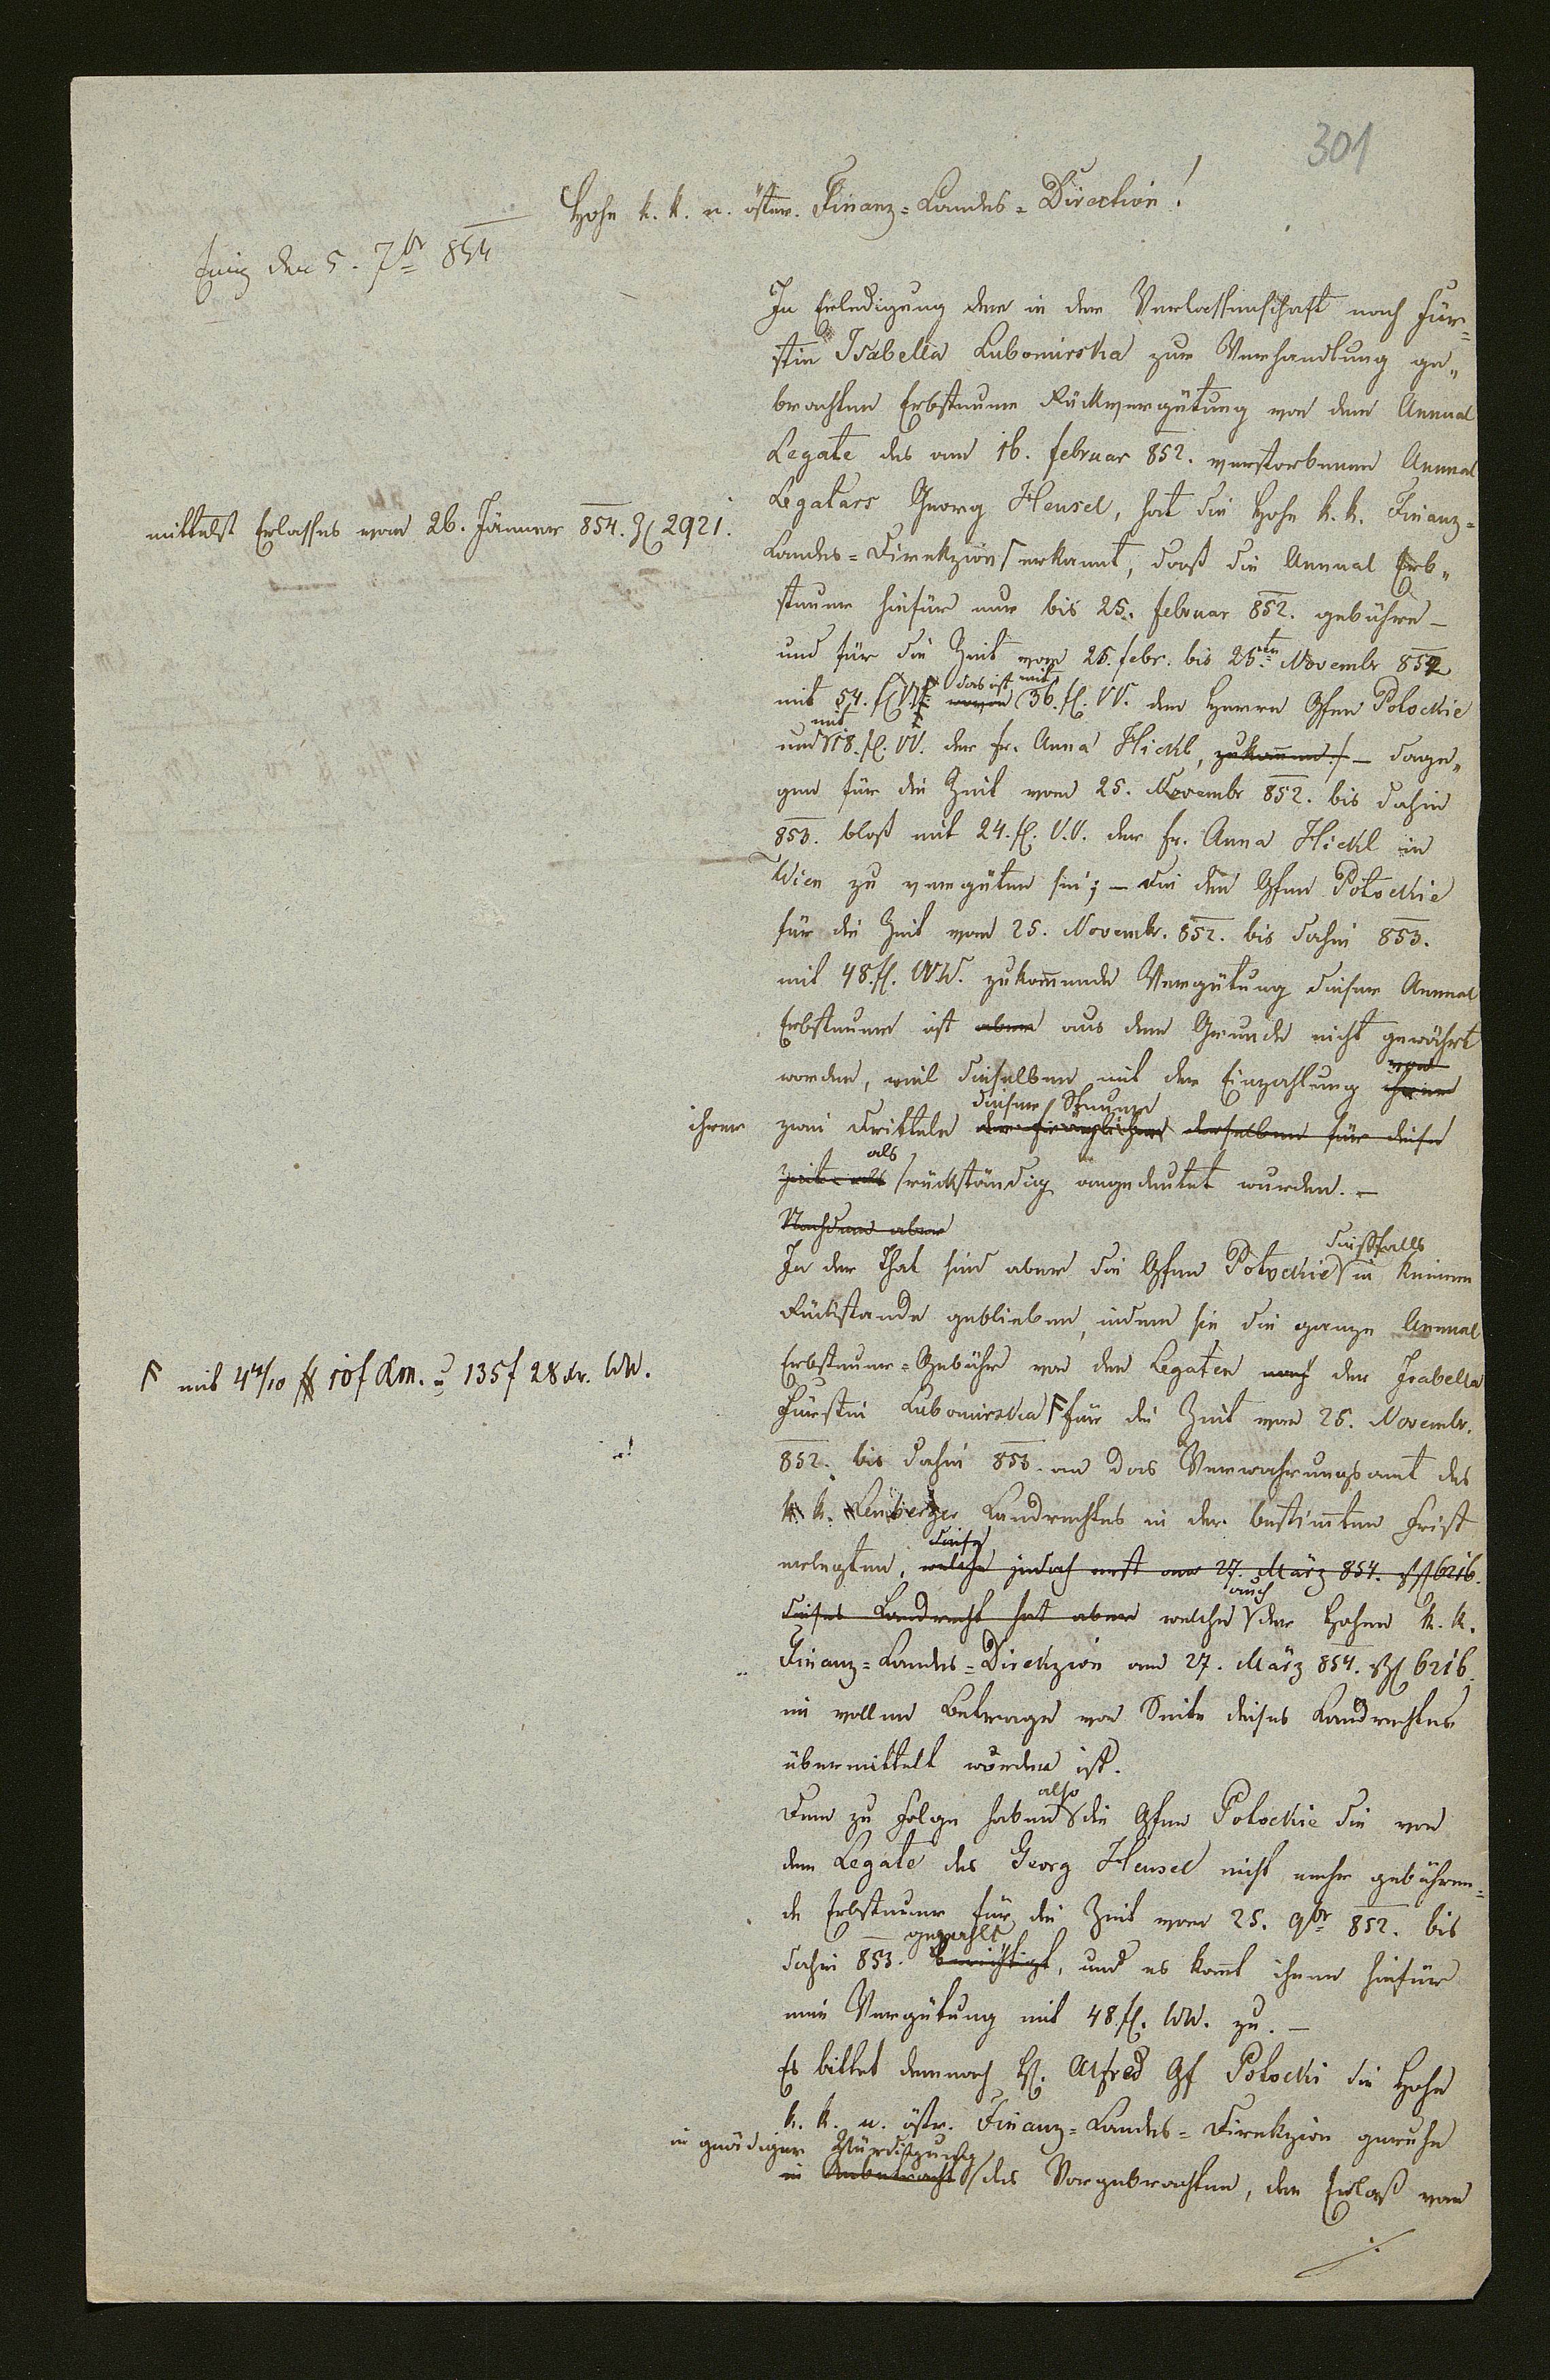 301
Hohe k. k. n. öster. Finanz=Landes=Direction!
den 5. 7br 854
In Erledigung der in der Verlassenschaft nach Für=
stin Isabella Lubomirska zur Verhandlung ge„
brachten Erbsteuer Rückvergütung von dem Annual
Legate des am 16. Februar 852. verstorbenen Annual
Legatars Georg Hensel, hat die Hohe k. k. Finanz=
mittelst Erlasses vom 26. Jänner 854. Z 2921.
Landes=Direkzion erkannt, daß die Annual Erb„
steuer hiefür nur bis 25. Februar 852. gebühre –
und für die Zeit vom 25. Febr. bis 25ten Novembr 852
das ist mit
mit 54. fl VV. wovon 36. fl. VV. den Herrn Gfen Potockie
mit
und 18. fl. VV. der Fr. Anna Hickl, zukomen – dage„
gen für die Zeit vom 25. Novembr 852. bis dahin
853. bloß mit 24. fl. V.V. der Fr. Anna Hickl in
Wien zu vergüten sei; – die den Gfen Potockie
für die Zeit vom 25. Novembr. 852. bis dahin 853.
mit 48. fl. WW. zukomende Vergütung dieser Annual
Erbsteuer ist aber aus dem Grunde nicht gewährt
worden, weil dieselben mit der Einzahlung von
ihrer zwei Dritteln dieser Steuer derselben für diese
Zeit als als rückständig angedeutet wurden. –
Nachdem aber
dießfalls
In der That sind aber die Gfen Potockie in keinem
Rückstande geblieben, indem sie die ganze Annual
Erbsteuer=Gebühr von den Legaten nach der Isabella
F mit 4 4/10 10 f Km. u 135 f 28 kr. WW.
Fürstin Lubomirska F für die Zeit vom 25. Novembr.
852. bis dahin 853. an das Verwahrungsamt des
k. k. Lemberger Landrechtes in der bestimten Frist
diese
erlegten, welche jedoch erst am 27. März 854. 6216.
auch
dieses Landrecht hat aber welche der Hohen k. k.
Finanz=Landes=Direkzion am 27. März 854. 6216.
im vollen Betrage von Seite dieses Landrechtes
übermittelt worden ist.
also
Dem zu Folge haben die Gfen Potockie die von
dem Legate des Georg Hensel nicht mehr gebühren=
de Erbsteuer für die Zeit vom 25. 9br 852. bis
gezahlt
dahin 853. berichtigt, und es komt ihnen hiefür
eine Vergütung mit 48. fl. WW. zu. –
Es bittet demnach H. Alfred Gf Potocki die Hohe
k. k. n. östr. Finanz=Landes=Direkzion geruhe
in gnädiger Würdigung
in Anbetracht des Vorgebrachten, den Erlaß vom
./.